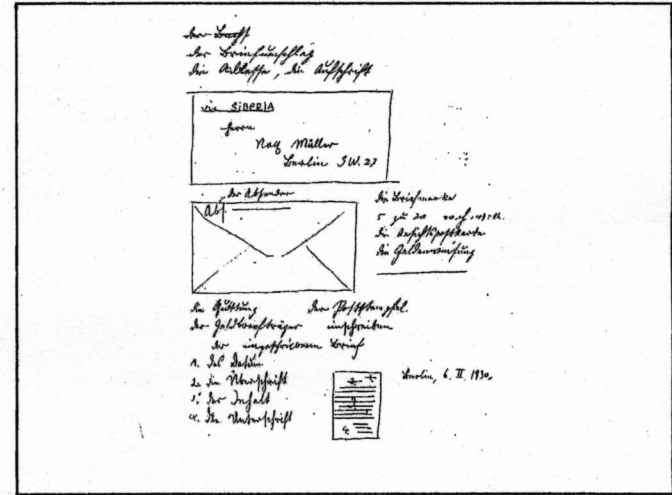 der Brief
der Briefumschlag
die Adresse, die Aufschrift
via SIBERIA
Herrn
Müller
Berlin SW. 27
der Absender
Abs.
die Briefmarke
5 zu 20
die Ansichtspostkarte
die Geldanweisung
die Quittung der Poststempel.
der Geldbriefträger einschreiben
der eingeschriebene Brief
1. das Datum
2. die Überschrift
3. der Inhalt
4. die Unterschrift
Berlin, 6. II. 1930.